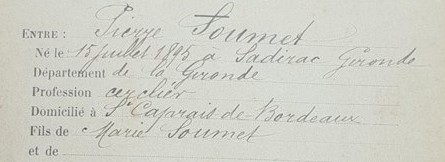 ENTRE : Pierre Soumet
Né le 15 juillet 1895 à Sadirac Gironde
Département de la Gironde
Profession cerclier
Domicilié à St Caprais-de-Bordeaux
Fils de Marie Soumet
et de